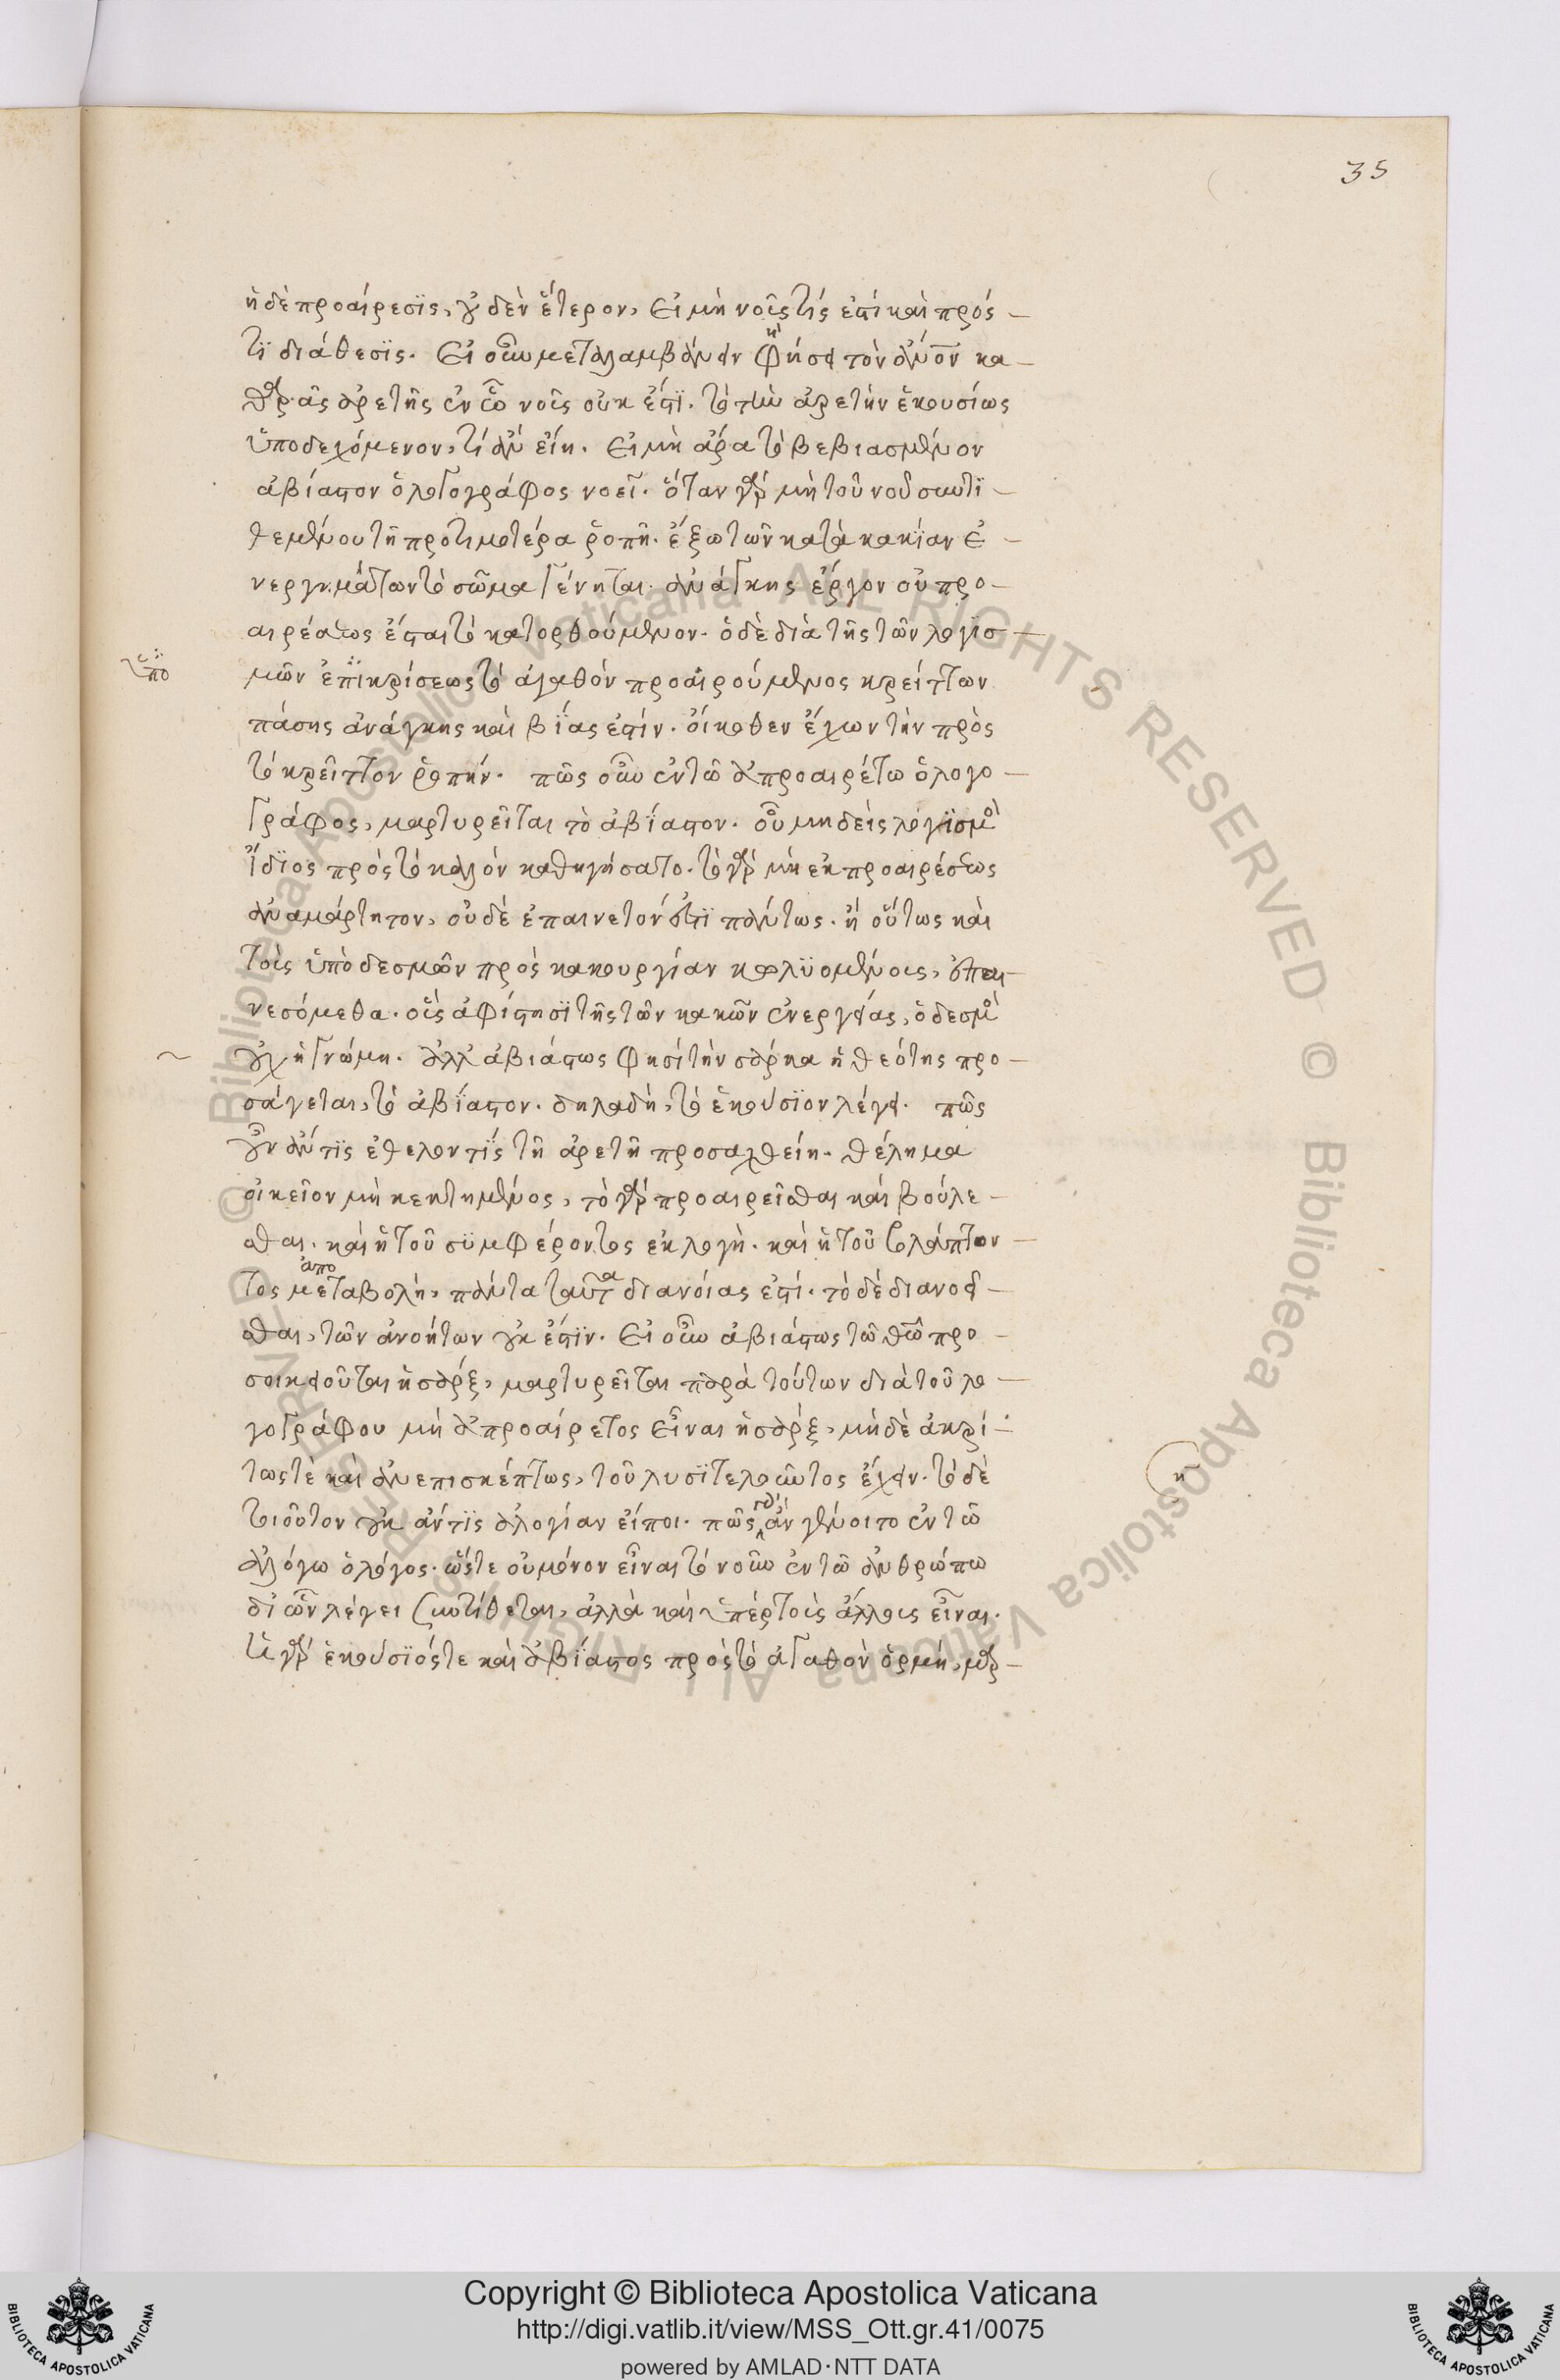 35
ἡ δὲ προαίρεσϊς, οὐδὲν ἕτερον, εἰ μὴ νοῦς τίς ἐστι καὶ πρός
τϊ διάθεσϊς. Εἰ οὖν μεταλαμβάνειν φήσει τὸν ἄνον κα
θαρᾶς ἀρετῆς ἐν ὧ νοῦς οὐκ ἔστϊ. τὸ τὴν ἀρετὴν ἑκουσίως
ὑποδεχόμενον, τί ἂν εἴη. Εἰ μὴ ἄρα τὸ βεβιασμένον
ἀβίαστον ὁ λογογράφος νοεῖ. ὅταν γὰρ μὴ τοῦ νοῦ συντϊ
θεμένου τῆ προτιμοτέρα ῥοπῆ. ἔξω τῶν κατὰ κακίαν ἐ
νεργημάτων τὸ σῶμα γένηται. ἀνάγκης ἔργον οὐ προ
αιρέσεως ἔσται τὸ κατορθούμενον. ὁ δὲ διὰ τῆς τῶν λογισ
ὑπο
μῶν ἐπϊκρίσεως τὸ ἀγαθὸν προαιρούμενος κρείττων
πάσης ἀνάγκης καὶ βίας ἐστίν. οἴκοθεν ἔχων τὴν πρὸς
τὸ κρεῖττον ῥοπήν. πῶς οὖν ἐν τῶ ἀπροαιρέτω ὁ λογο
γράφος, μαρτυρεῖται τὸ ἀβίαστον. οὗ μηδεὶς λογϊσμὸ
ἴδϊος πρὸς τὸ καλὸν καθηγήσατο. τὸ γὰρ μὴ ἐκ προαιρέσεως
ἀναμάρτητον, οὐδὲ ἐπαινετόν ἐστϊ πάντως. ἢ οὕτως καὶ
τοὺς ὑπὸ δεσμῶν πρὸς κακουργίαν κωλϋομένους, ἐπαι
νεσόμεθα. οὓς ἀφίστησϊ τῆς τῶν κακῶν ἐνεργείας, ὁ δεσμὸ
οὐχ ἡ γνώμη. ἀλλ' ἀβιάστως φησὶ τὴν σάρκα ἡ θεότης προ
σάγεται, τὸ ἀβίαστον. δηλαδὴ, τὸ ἑκούσϊον λέγει. πῶς
οὖν ἄν τϊς ἐθελοντῒς τῆ ἀρετῆ προσαχθείη. θέλημα
οἰκεῖον μὴ κεκτημένος, τὸ γὰρ προαιρεῖσθαι καὶ βούλε
σθαι. καὶ ἡ τοῦ σϋμφέροντος ἐκλογὴ. καὶ ἡ τοῦ βλάπτον
ἀπο
τος μεταβολὴ, πάντα ταῦτα διανοίας ἐστί. τὸ δὲ διανοεῖ
σθαι, τῶν ἀνοήτων οὐκ ἔστϊν. Εἰ οὖν ἀβιάστως τῶ θῶ προ
σοικειοῦται ἡ σάρξ, μαρτυρεῖται παρὰ τούτων διὰ τοῦ λο
γογράφου μὴ ἀπροαίρετος εἶναι ἡ σάρξ, μήδὲ ἀκρί
τως τὲ καὶ ἀνεπισκέπτως, τοῦ λυσϊτελοῦντος ἔχειν. τὸ δὲ
τοιοῦτον οὐκ ἄν τϊς ἀλογίαν εἴποι. πῶς ἂν γένοιτο ἐν τῶ
ἀλόγω ὁ λόγος. ὥστε οὐ μόνον εἶναι τὸ νοῦν ἐν τῶ ἀνθρώπω
δι' ὧν λέγει συντίθεται, ἀλλὰ καὶ ὑπὲρ τοὺς ἄλλους εἶναι.
ἡ γὰρ ἑκούσϊός τε καὶ ἀβίαστος πρὸς τὸ ἀγαθὸν ὁρμή, μαρ
Copyright © Biblioteca Apostolica Vaticana
http://digi.vatlib.it/view/MSS_Ott.gr.41/0075
powered by AMLAD·NTT DATA